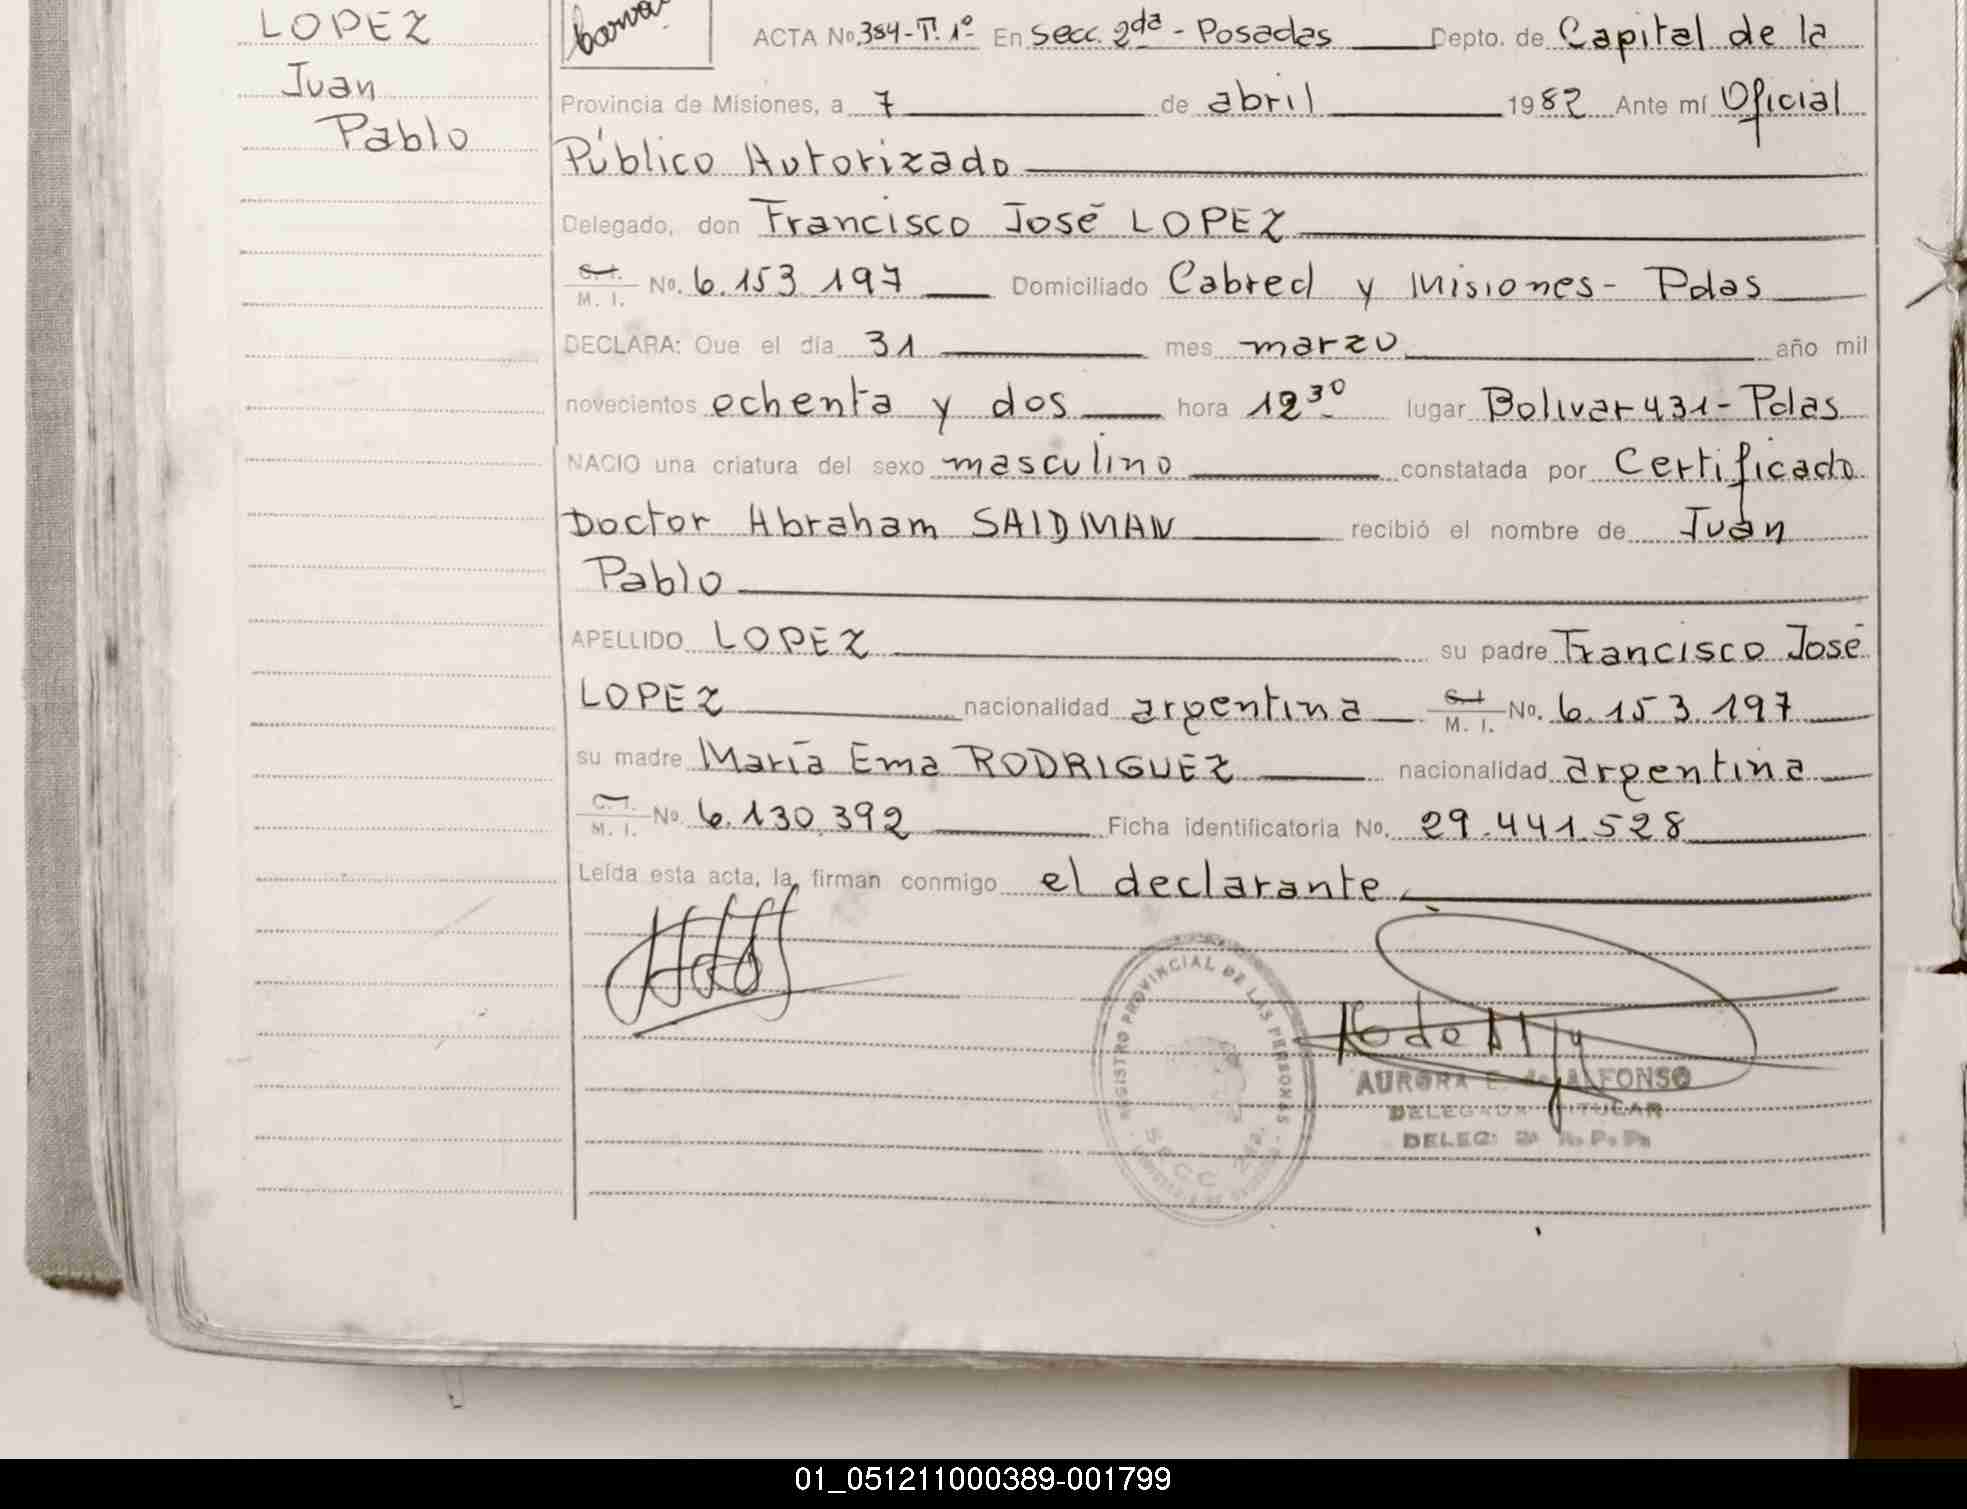 LOPEZ
Juan
Pablo
ACTA No. 384-Tº. 1º En Secc. 2da - Posadas Depto. de Capital de la
Provincia de Misiones, a 7 de abril 1982 Ante mí Oficial
Público Autorizado
Delegado, don Francisco José LOPEZ
C. I.
M. I. No. 6.153.197 Domiciliado Cabred y Misiones - Pdas
DECLARA: Que el día 31 mes marzo año mil
novecientos ochenta y dos hora 12 30 lugar Bolivar 431 - Pdas
NACIO una criatura del sexo masculino constatada por Certificado
Doctor Abraham SAIDMAN recibió el nombre de Juan
Pablo
APELLIDO LOPEZ su padre Francisco José
LOPEZ nacionalidad argentina C. I.
M. I. No. 6.153.197
su madre María Ema RODRIGUEZ nacionalidad argentina
C. I.
M. I. No. 6.130.392 Ficha identificatoria No. 29.441.528
Leída esta acta, la firman conmigo el declarante
REGISTRO PROVINCIAL DE LAS PERSONAS
SECC. 2da.
AURORA E. de ALFONSO
DELEGADA TITULAR
DELEG. 2ª R. P. P.
01_051211000389-001799